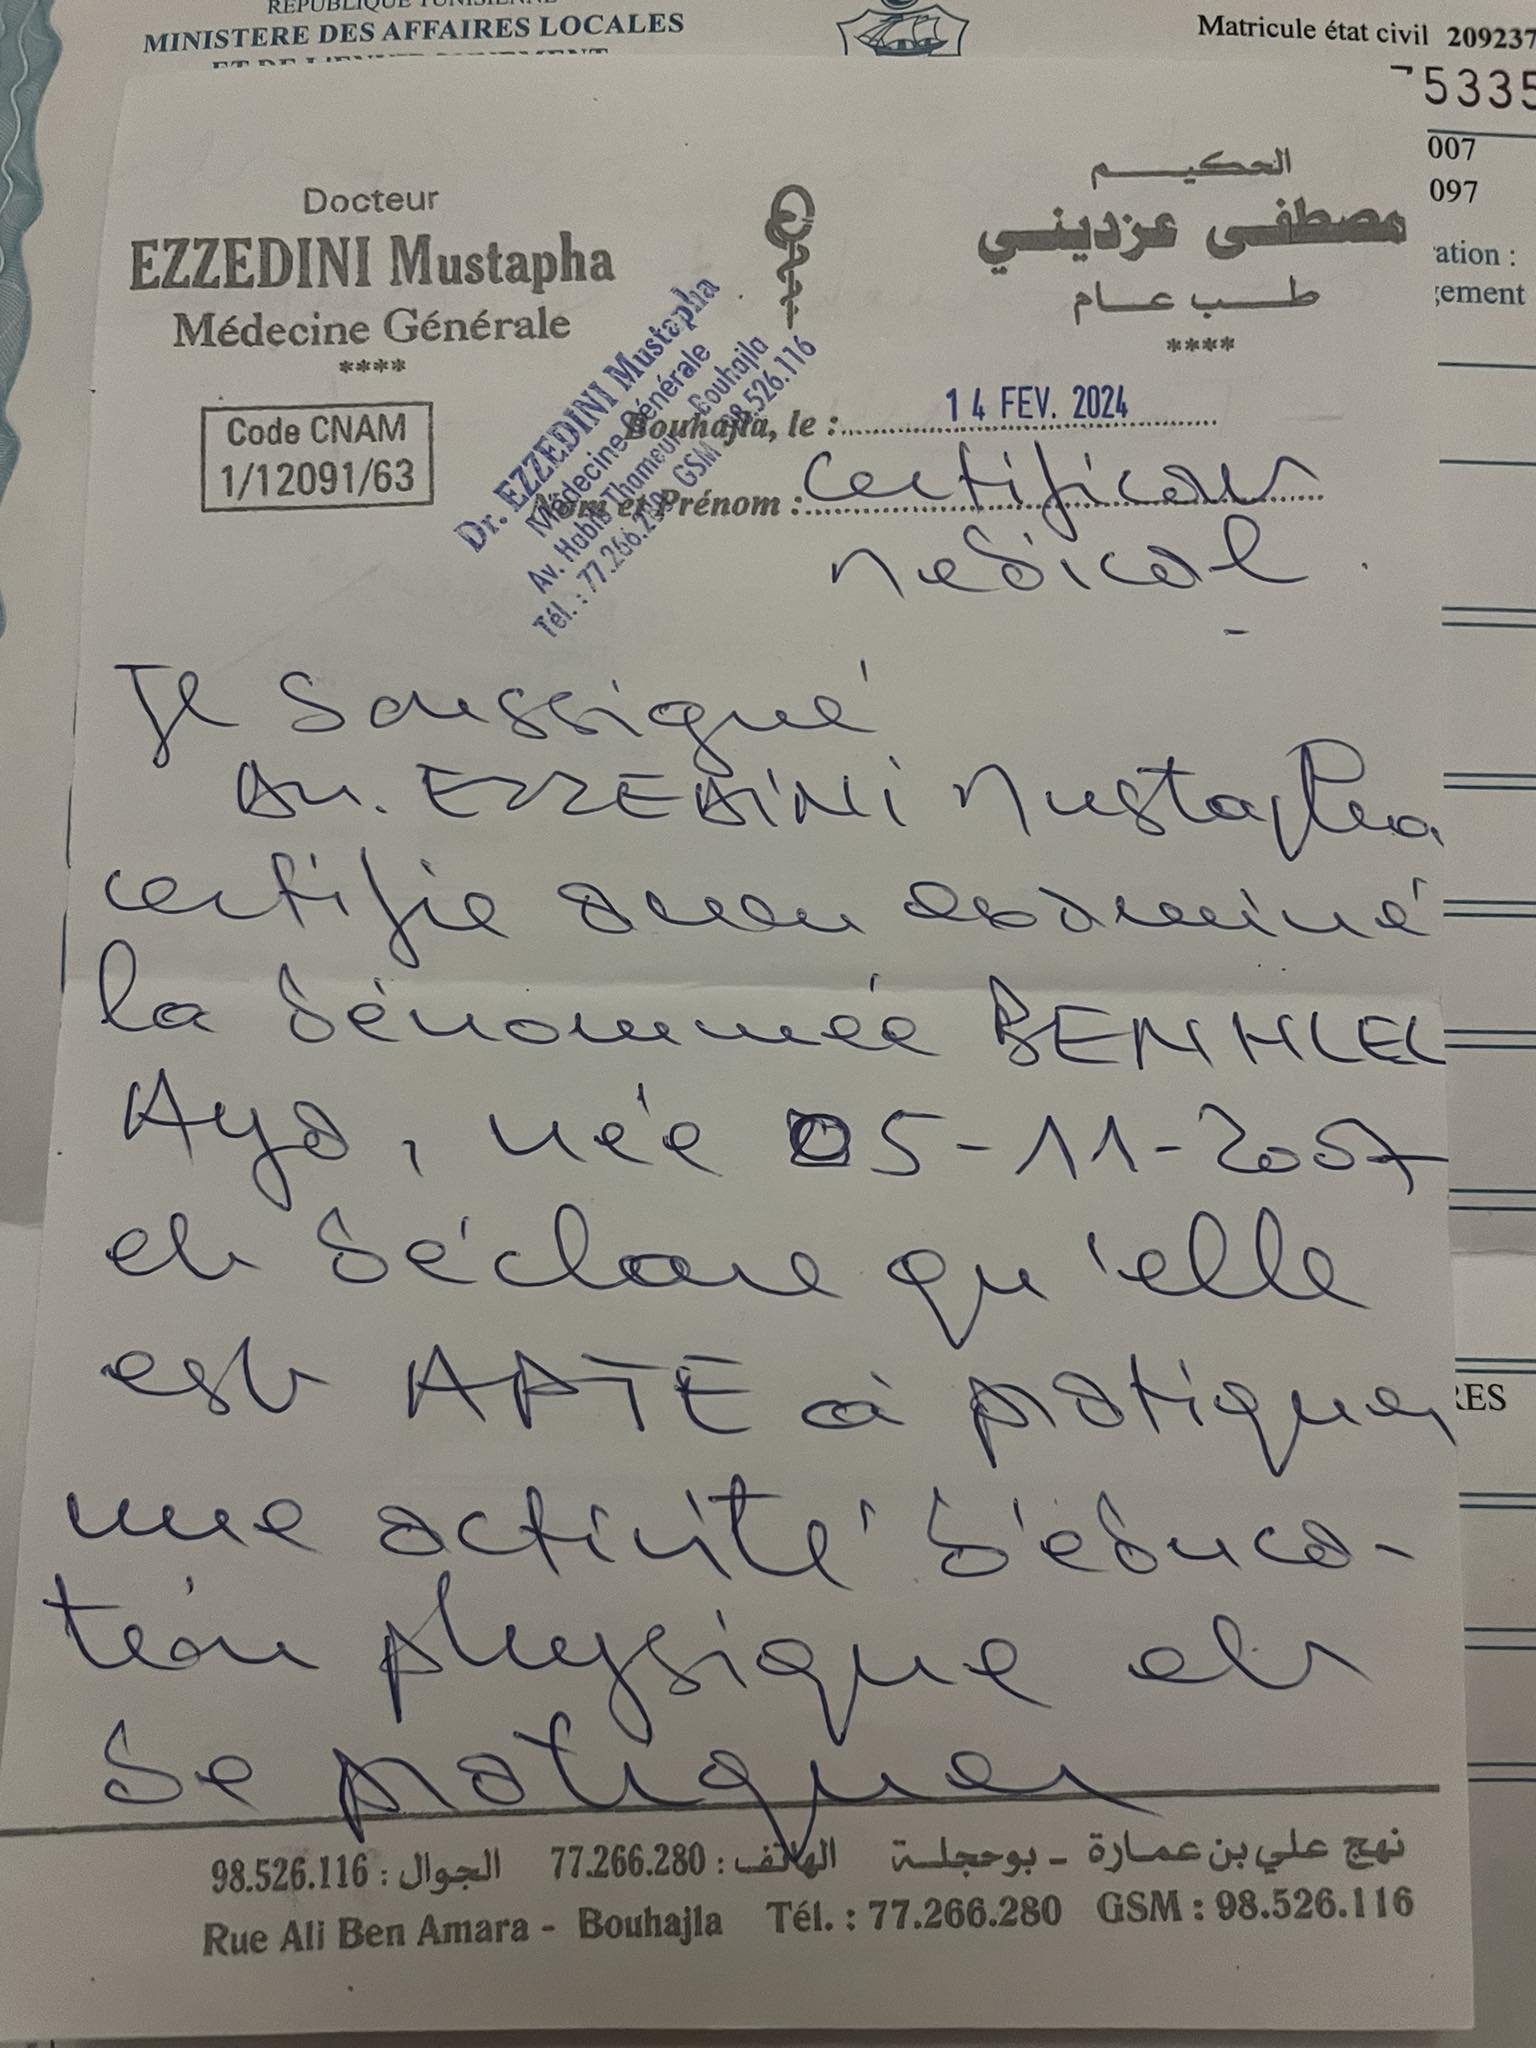 REPUBLIQUE TUNISIENNE
MINISTERE DES AFFAIRES LOCALES
Matricule état civil 209237
5335
007
097
ation :
gement
RES
Docteur
EZZEDINI Mustapha
Médecine Générale
****
Code CNAM
1/12091/63
الحكيم
مصطفى عزديني
طب عام
****
Dr. EZZEDINI Mustapha
Médecine Générale
Av. Habib Thameur - Bouhajla
Tél. : 77.266.280 GSM 98.526.116
Bouhajla, le : 14 FEV. 2024
Nom et Prénom : certificat
medical
Je soussigné
Dr. EZZEDINI Mustapha
certifie avoir examiné
la dénommée BEN HLEL
Aya, née 05-11-2007
et déclare qu'elle
est APTE à pratiquer
une activité d'éduca-
tion physique et
de pratiquer
نهج علي بن عمارة - بوحجلة الهاتف : 77.266.280 الجوال : 98.526.116
Rue Ali Ben Amara - Bouhajla Tél. : 77.266.280 GSM : 98.526.116